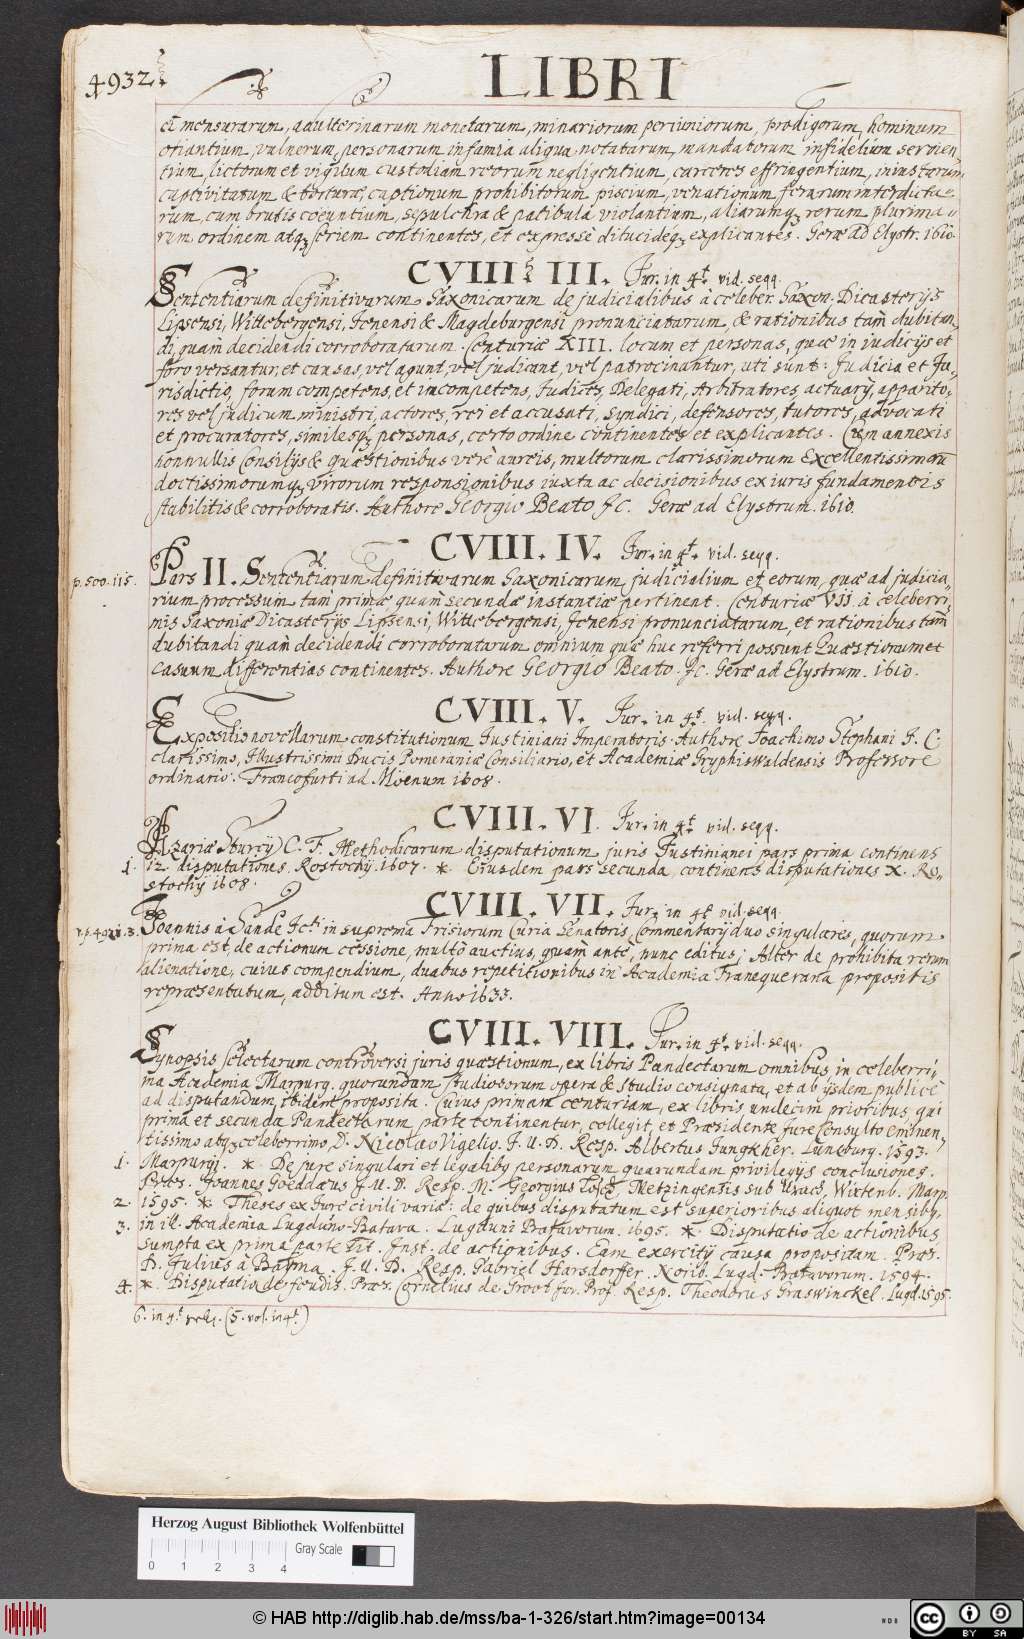 4932
LIBRI
et mensurarum, adulterinarum monetarum, minariorum perjuriorum, prodigorum, hominum
otiantium, vulnerum, personarum infamia aliqua notatarum, mandatorum infidelium servien-
tium, lictorum et vigilum custodiam reorum negligentium, carceres effringentium, iniustarum
captivitatum & torturæ, captionum prohibitorum piscium, venationum ferarum interdicta-
rum, cum brutis coeuntium, sepulchra & patibula violantium, aliarumq; rerum plurima-
rum ordinem atq; seriem continentes, et expressè dilucideq; explicantes. Geræ ad Elystr. 1610.
CVIII III. Jur. in 4t. vid. seqq.
Sententiarum definitivarum Saxonicarum de judicialibus à celeber. Saxon. Dicasterijs
Lipsensi, Wittebergensi, Jenensi & Magdeburgensi pronunciatarum, & rationibus tam dubitan-
di, quam decidendi corroboratarum. Centuriæ XIII. locum et personas, quæ in iudicijs et
foro versantur, et causas, vel agunt, vel judicant, vel patrocinantur, uti sunt: Judicia et Ju-
risdictio, forum competens, et incompetens, Judices, Delegati, Arbitratores, actuarij, apparito-
res vel judicum ministri, actores, rei et accusati, syndici, defensores, tutores, advocati
et procuratores, similesq; personas, certo ordine continentes et explicantes. Cum annexis
nonnullis Consilijs & quæstionibus verè aureis, multorum clarissimorum Excellentissimorū
doctissimorumq; virorum responsionibus iuxta ac decisionibus ex iuris fundamentis
stabilitis & corroboratis. Authore Georgio Beato JC. Geræ ad Elystrum. 1610.
CVIII. IV. Jur. in 4t. vid. seqq.
p. 500. 115.
Pars II. Sententiarum definitivarum Saxonicarum judicialium et eorum, quæ ad judicia-
rium processum tam primæ quam secundæ instantiæ pertinent. Centuriæ VII. à celeberri-
mis Saxoniæ Dicasterijs Lipsensi, Wittebergensi, Jenensi pronunciatarum, et rationibus tam
dubitandi quam decidendi corroboratarum omnium quæ huc referri possunt Quæstionum et
casuum differentias continentes. Authore Georgio Beato. JC. Geræ ad Elystrum. 1610.
CVIII. V. Jur. in 4t. vid. seqq.
Expositio novellarum constitutionum Justiniani Imperatoris. Authore Joachimo Stephani J. C
clarissimo, Illustrissimi Ducis Pomeraniæ Consiliario, et Academiæ Gryphiswaldensis Professore
ordinario. Francofurti ad Moenum 1608.
CVIII. VI. Jur. in 4t. vid. seqq.
Azariæ Sturcij C. F. Methodicarum disputationum juris Justinianei pars prima continens
1. 12. disputationes. Rostochij 1607. * Eiusdem pars secunda, continens disputationes X. Ro-
stochij 1608.
CVIII. VII. Jur. in 4t vid. seqq.
Joannis à Sande Jcti in suprema Frisiorum Curia Senatoris, Commentarij duo singulares, quorum
prima est, de actionum cessione, multò auctius, quam antè, nunc editus; Alter de prohibita rerum
alienatione, cuius compendium, duabus repetitionibus in Academia Franequerana propositis
repræsentatum, additum est. Anno 1633.
CVIII. VIII. Jur. in 4t. vid. seqq.
Synopsis selectarum controversi juris quæstionum, ex libris Pandectarum omnibus in celeberri-
ma Academia Marpurg. quorundam studiosorum opera & studio consignata, et ab ijsdem publicè
ad disputandum, ibidem proposita. Cuius primam centuriam, ex libris undecim prioribus qui
prima et secunda Pandectarum parte continentur, collegit, et Præsidente Jureconsulto eminen-
tissimo atq; celeberrimo, D. Nicolao Vigelio. J. U. D. Resp. Albertus Jungkher. Luneburg. 1593.
1. Marpurgi. * De jure singulari et legalibq personarum quarundam privilegijs conclusiones.
Præs. Joannes Goeddæus J. U. D. Resp. M. Georgius Metzingensis sub Urach. Wirtenb. Marp.
2. 1595. * Theses ex Jure civili variæ: de quibus disputatum est superioribus aliquot mensibq,
3. in ill. Academia Lugduno-Batava. Lugduni Batavorum. 1695. * Disputatio de actionibus
sumpta ex prima parte Tit. Inst. de actionibus. Eam exercitij causa propositam. Præs.
D. Julius à Batma. J. U. D. Resp. Gabriel Harsdorffer. Norib. Lugd: Batavorum. 1594.
4. * Disputatio de feudis. Præs. Cornelius de Groot Jur. Prof. Resp. Theodorus Graswinckel. Lugd. 1595.
6. in 4t. (5. vol. in 4t.)
Herzog August Bibliothek Wolfenbüttel
Gray Scale
0 1 2 3 4
© HAB http://diglib.hab.de/mss/ba-1-326/start.htm?image=00134
cc BY SA